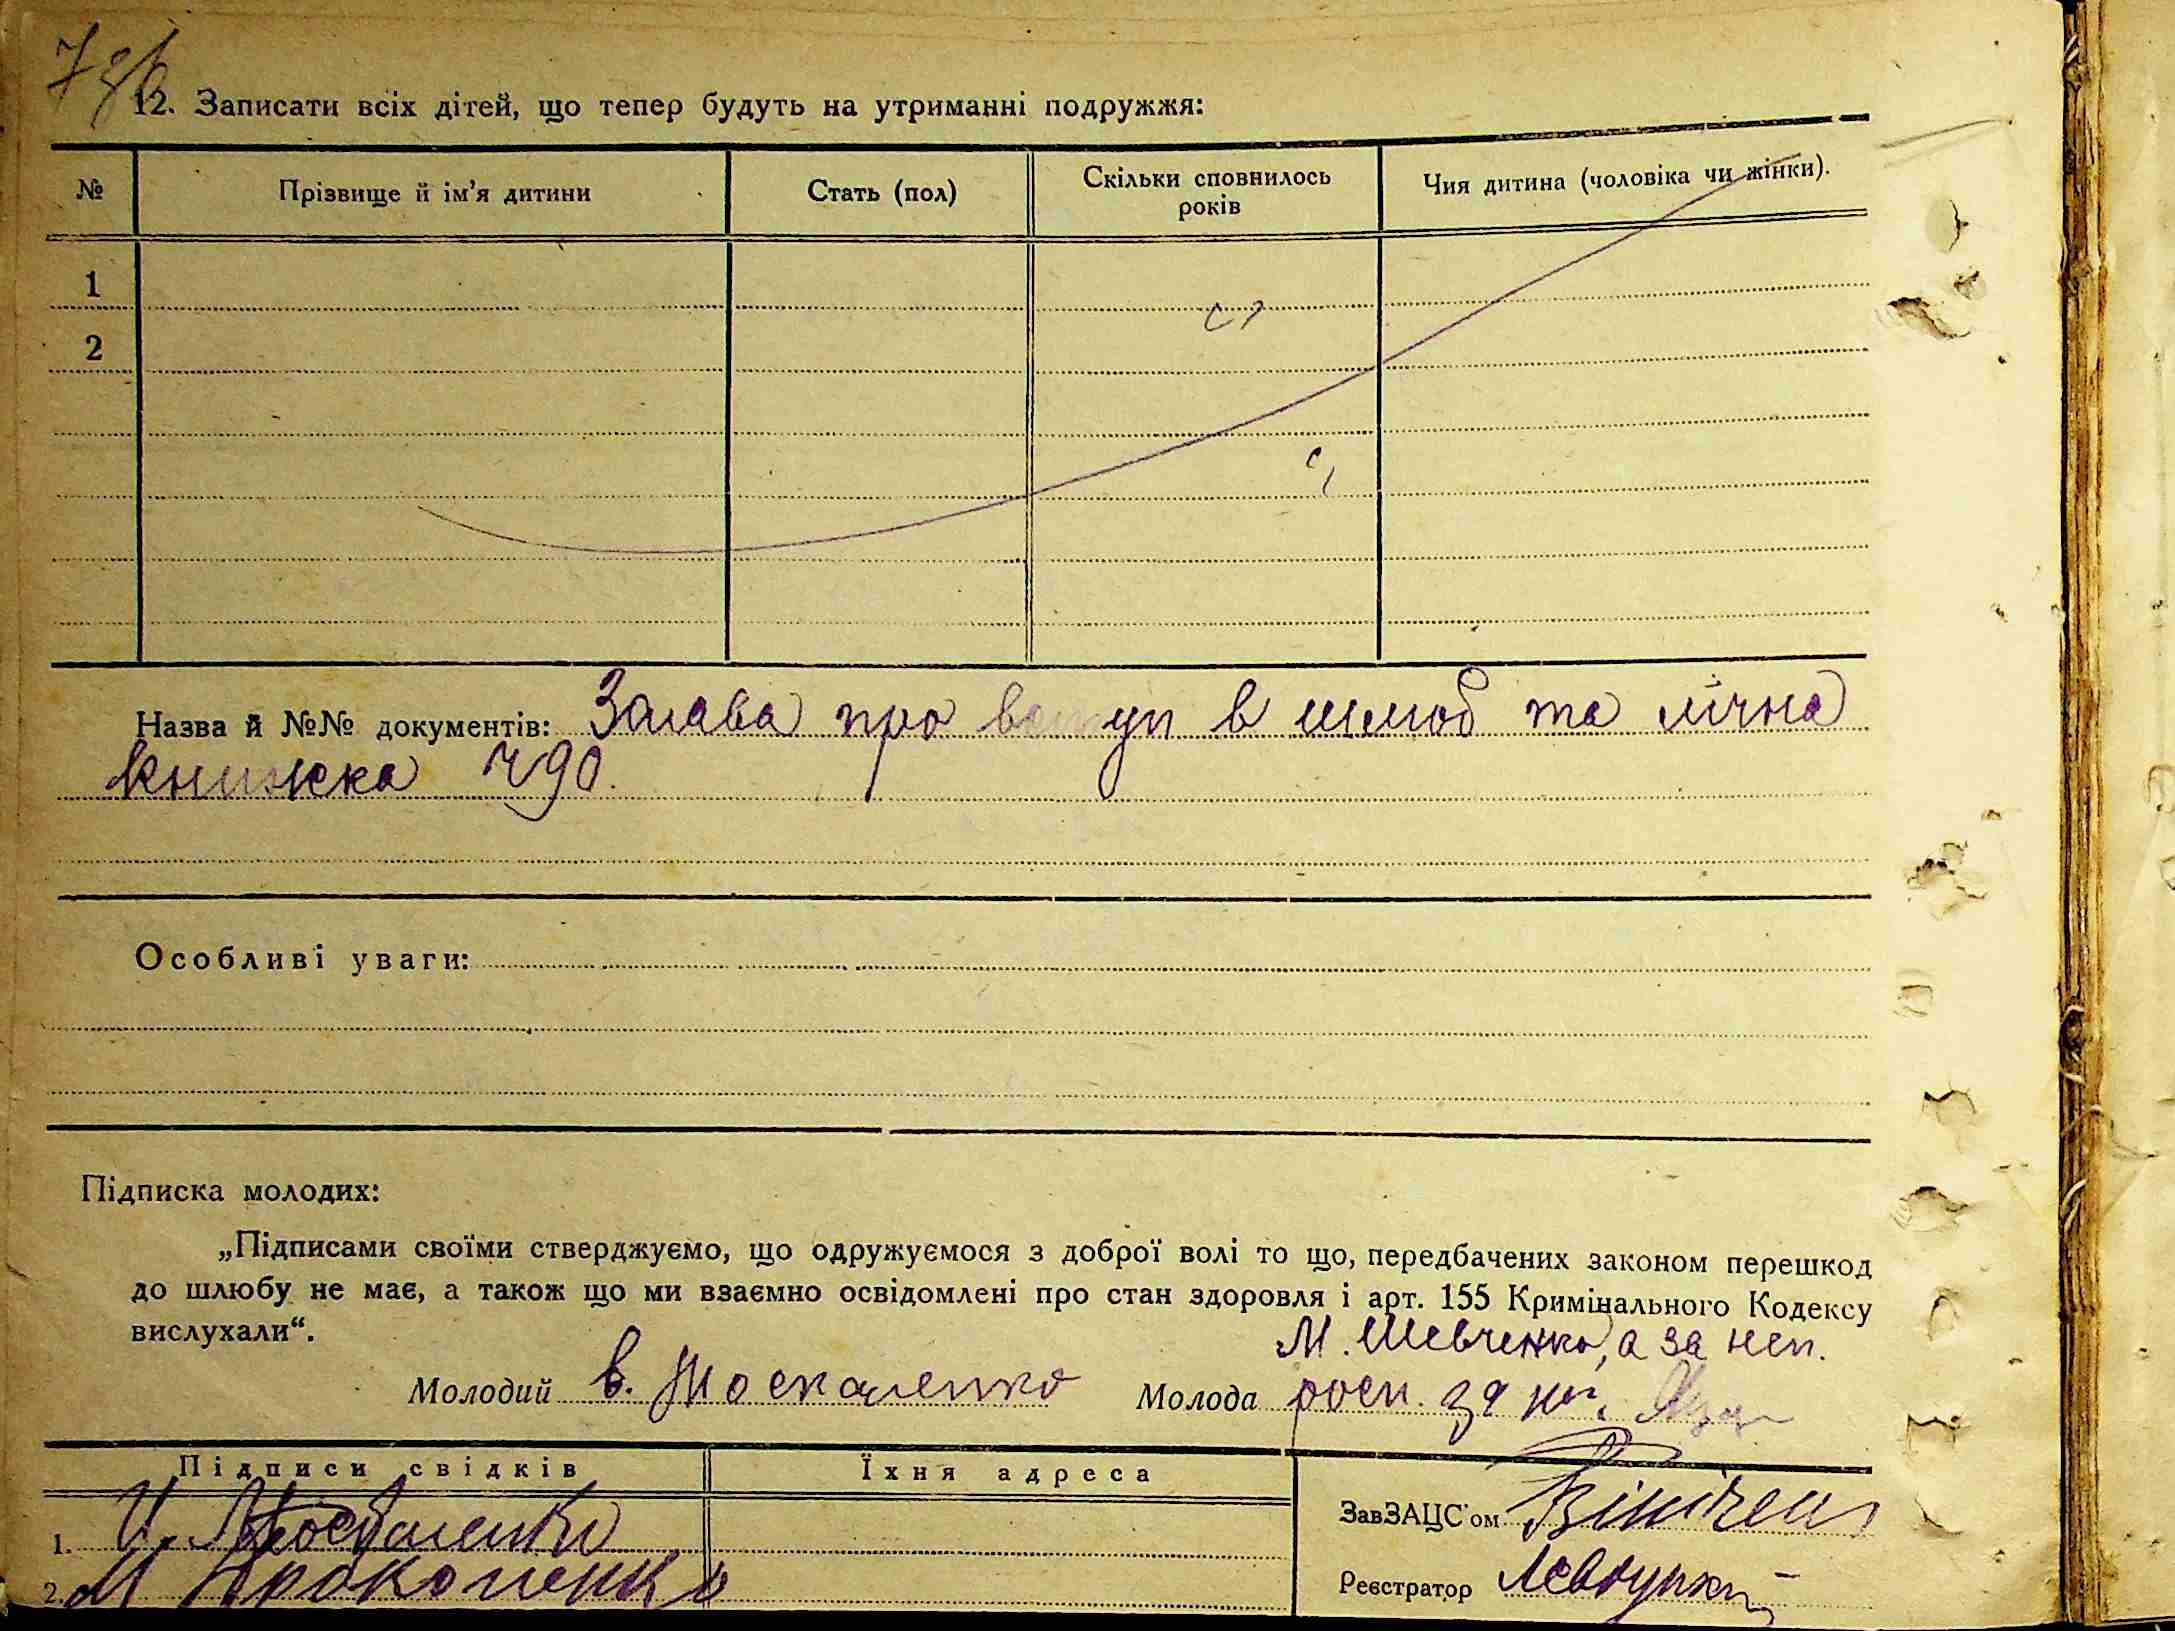 7зв
12. Записати всіх дітей, що тепер будуть на утриманні подружжя:
№ Прізвище й ім’я дитини Стать (пол) Скільки сповнилось років Чия дитина (чоловіка чи жінки).
1
2
Назва й №№ документів: Заява про вступ в шлюб та лічна
книжка ч 90.
Особливі уваги:
Підписка молодих:
„Підписами своїми стверджуємо, що одружуємося з доброї волі то що, передбачених законом перешкод
до шлюбу не має, а також що ми взаємно освідомлені про стан здоровля і арт. 155 Кримінального Кодексу
вислухали“.
М. Шевченко, а за неп.
Молодий В. Москаленко Молода росп.
Підписи свідків Їхня адреса
ЗавЗАЦС'ом
1. Москаленко
2. М Прокопенко
Реєстратор